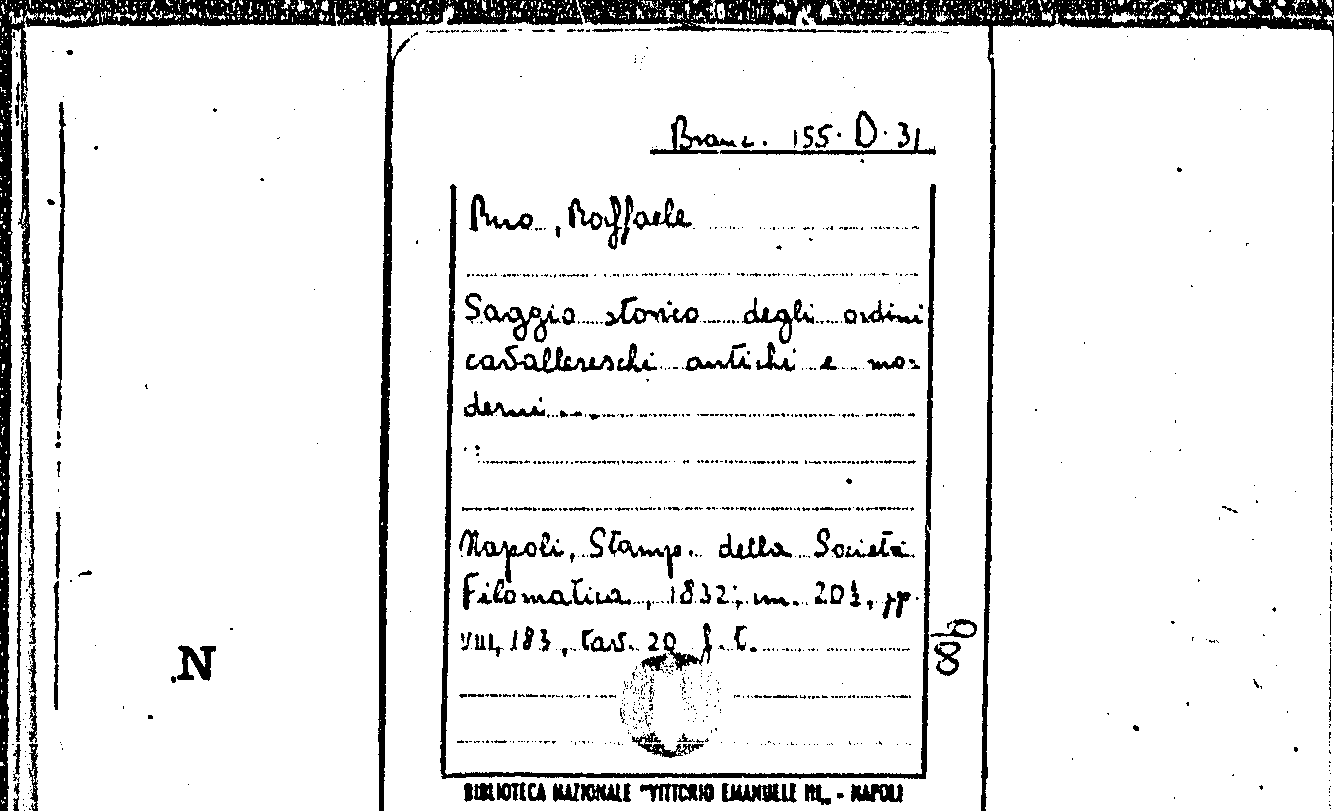 Branc. 155. D. 31
Ruo, Raffaele
Saggio storico degli ordini
cavallereschi antichi e mo=
derni...
Napoli, Stamp. della Società
Filomatica, 1832; cm. 20½, pp.
VIII, 183, tav. 20 f. t.
N
BIBLIOTECA NAZIONALE "VITTORIO EMANUELE III„ - NAPOLI